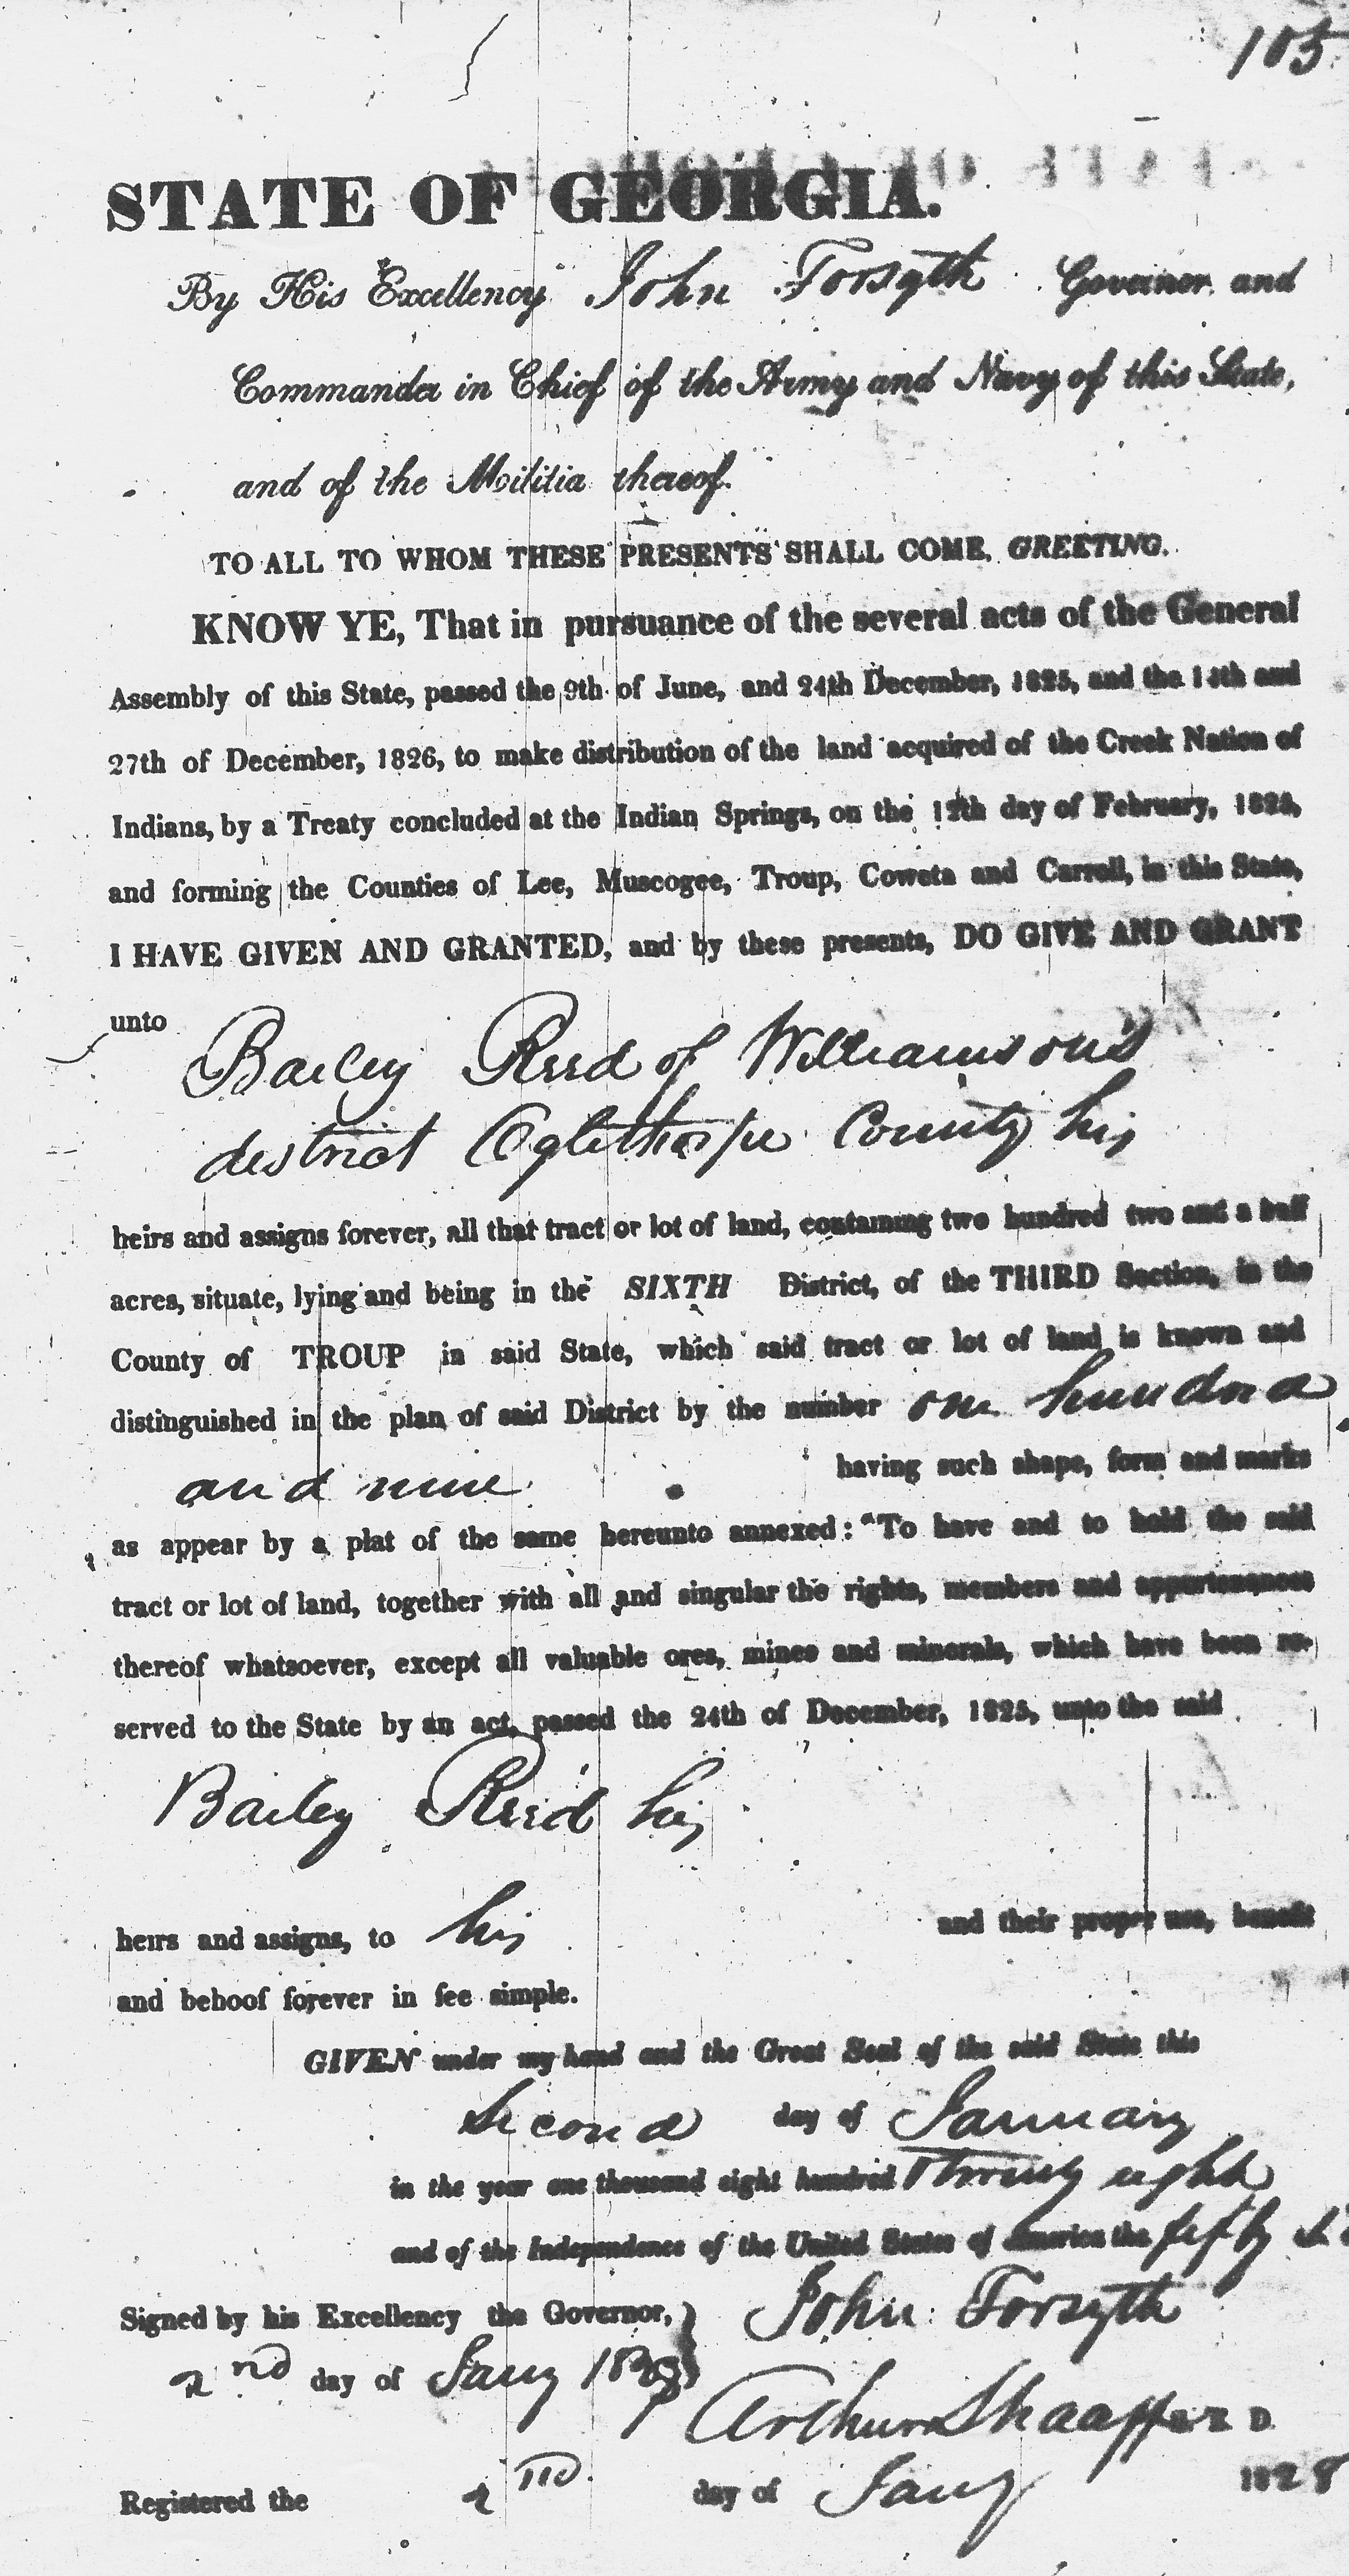 105
STATE OF GEORGIA.
By His Excellency John Forsyth Governor and
Commander in Chief of the Army and Navy of this State,
and of the Militia thereof.
TO ALL TO WHOM THESE PRESENTS SHALL COME, GREETING.
KNOW YE, That in pursuance of the several acts of the General
Assembly of this State, passed the 9th of June, and 24th December, 1825, and the 14th and
27th of December, 1826, to make distribution of the land acquired of the Creek Nation of
Indians, by a Treaty concluded at the Indian Springs, on the 12th day of February, 1825,
and forming the Counties of Lee, Muscogee, Troup, Coweta and Carroll, in this State,
I HAVE GIVEN AND GRANTED, and by these presents, DO GIVE AND GRANT
unto
Bailey Reed of Williamson's
district Oglethorpe County his
heirs and assigns forever, all that tract or lot of land, containing two hundred two and a half
acres, situate, lying and being in the SIXTH District, of the THIRD Section, in the
County of TROUP in said State, which said tract or lot of land is known and
distinguished in the plan of said District by the number one hundred
and nine having such shape, form and marks
as appear by a plat of the same hereunto annexed: "To have and to hold the said
tract or lot of land, together with all and singular the rights, members and appurtenances
thereof whatsoever, except all valuable ores, mines and minerals, which have been re-
served to the State by an act, passed the 24th of December, 1825, unto the said
Bailey Reed his
heirs and assigns, to his and their proper use, benefit
and behoof forever in fee simple.
GIVEN under my hand and the Great Seal of the said State this
Second day of January
in the year one thousand eight hundred Twenty eight
and of the Independence of the United States of America the fifty
Signed by his Excellency the Governor, } John Forsyth
2nd day of Jany 1828
Arthur Shaaff
Registered the 2nd day of Jany 1828